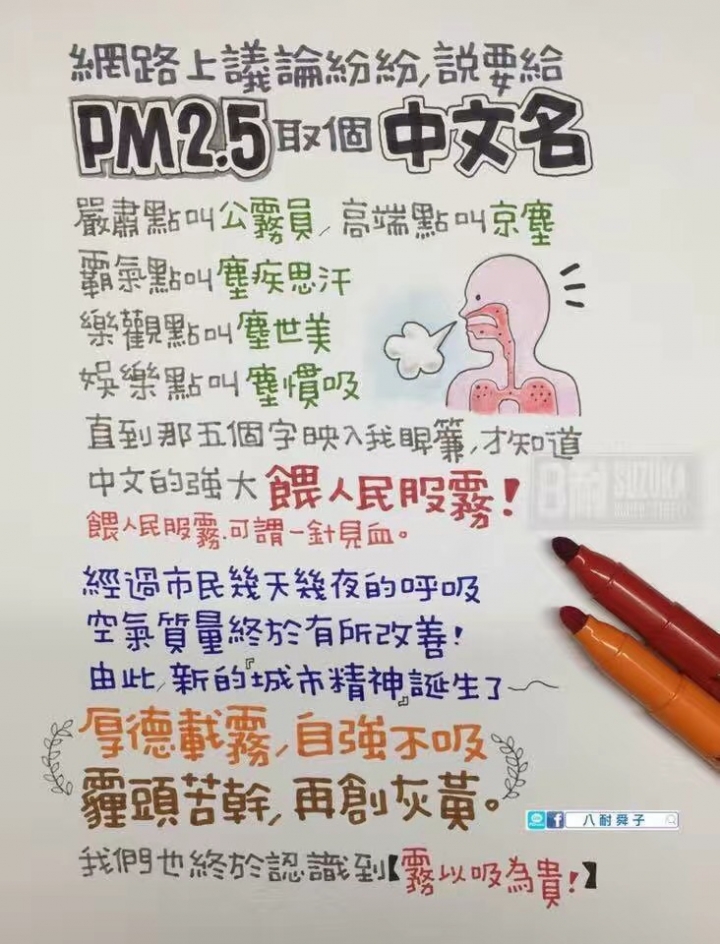 網路上議論紛紛,說要給
PM2.5取個中文名
嚴肅點叫公霧員,高端點叫京塵
霸氣點叫塵疾思汗
樂觀點叫塵世美
娛樂點叫塵慣吸
直到那五個字映入我眼簾,才知道
中文的強大餵人民服霧!
餵人民服霧.可謂一針見血。
經過市民幾天幾夜的呼吸
空氣質量終於有所改善!
由此,新的『城市精神』誕生了~
厚德載霧,自強不吸
霾頭苦幹,再創灰黃。
八耐舜子
我們也終於認識到【霧以吸為貴!】
8耐 SUZUKA